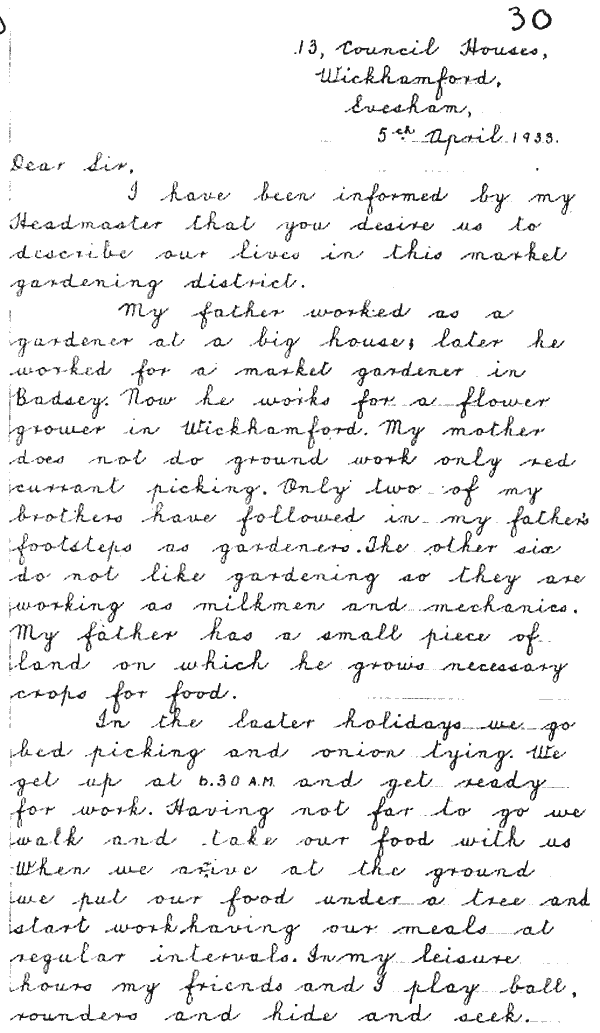 30
13, Council Houses,
Wickhamford,
Evesham,
5th April 1933.
Dear Sir,
I have been informed by my
Headmaster that you desire us to
describe our lives in this market
gardening district.
My father worked as a
gardener at a big house; later he
worked for a market gardener in
Badsey. Now he works for a flower
grower in Wickhamford. My mother
does not do ground work only red
currant picking. Only two of my
brothers have followed in my father's
footsteps as gardeners. The other six
do not like gardening so they are
working as milkmen and mechanics.
My father has a small piece of
land on which he grows necessary
crops for food.
In the Easter holidays we go
bed picking and onion tying. We
get up at 6.30 A.M. and get ready
for work. Having not far to go we
walk and take our food with us
When we arive at the ground
we put our food under a tree and
start work having our meals at
regular intervals. In my leisure
hours my friends and I play ball,
rounders and hide and seek.